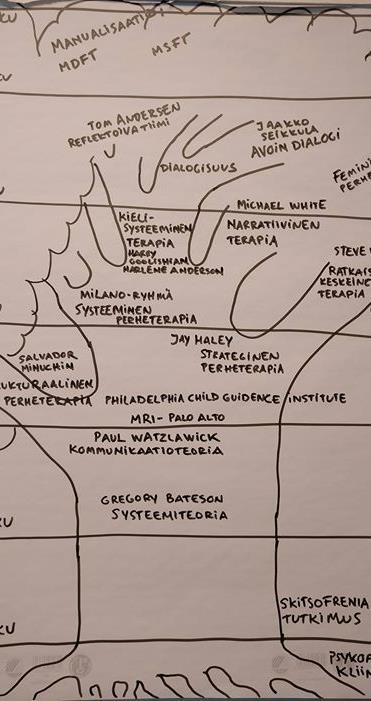 KU
MANUALISAATIO
MDFT
MSFT
KU
TOM ANDERSEN
REFLEKTOIVA TIIMI
JAAKKO
SEIKKULA
AVOIN DIALOGI
DIALOGISUUS
FEMINI
PERHE
MICHAEL WHITE
KIELI-
SYSTEEMINEN
TERAPIA
HARRY
GOOLISHIAN
HARLENE ANDERSON
NARRATIIVINEN
TERAPIA
STEVE
RATKAIS
KESKEINE
TERAPIA
MILANO-RYHMÄ
SYSTEEMINEN
PERHETERAPIA
JAY HALEY
STRATEGINEN
PERHETERAPIA
SALVADOR
MINUCHIN
UKTURAALINEN
PERHETERAPIA
PHILADELPHIA CHILD GUIDENCE INSTITUTE
MRI- PALO ALTO
PAUL WATZLAWICK
KOMMUNIKAATIOTEORIA
GREGORY BATESON
SYSTEEMITEORIA
KU
SKITSOFRENIA
TUTKIMUS
KU
PSYKOA
KLIIN